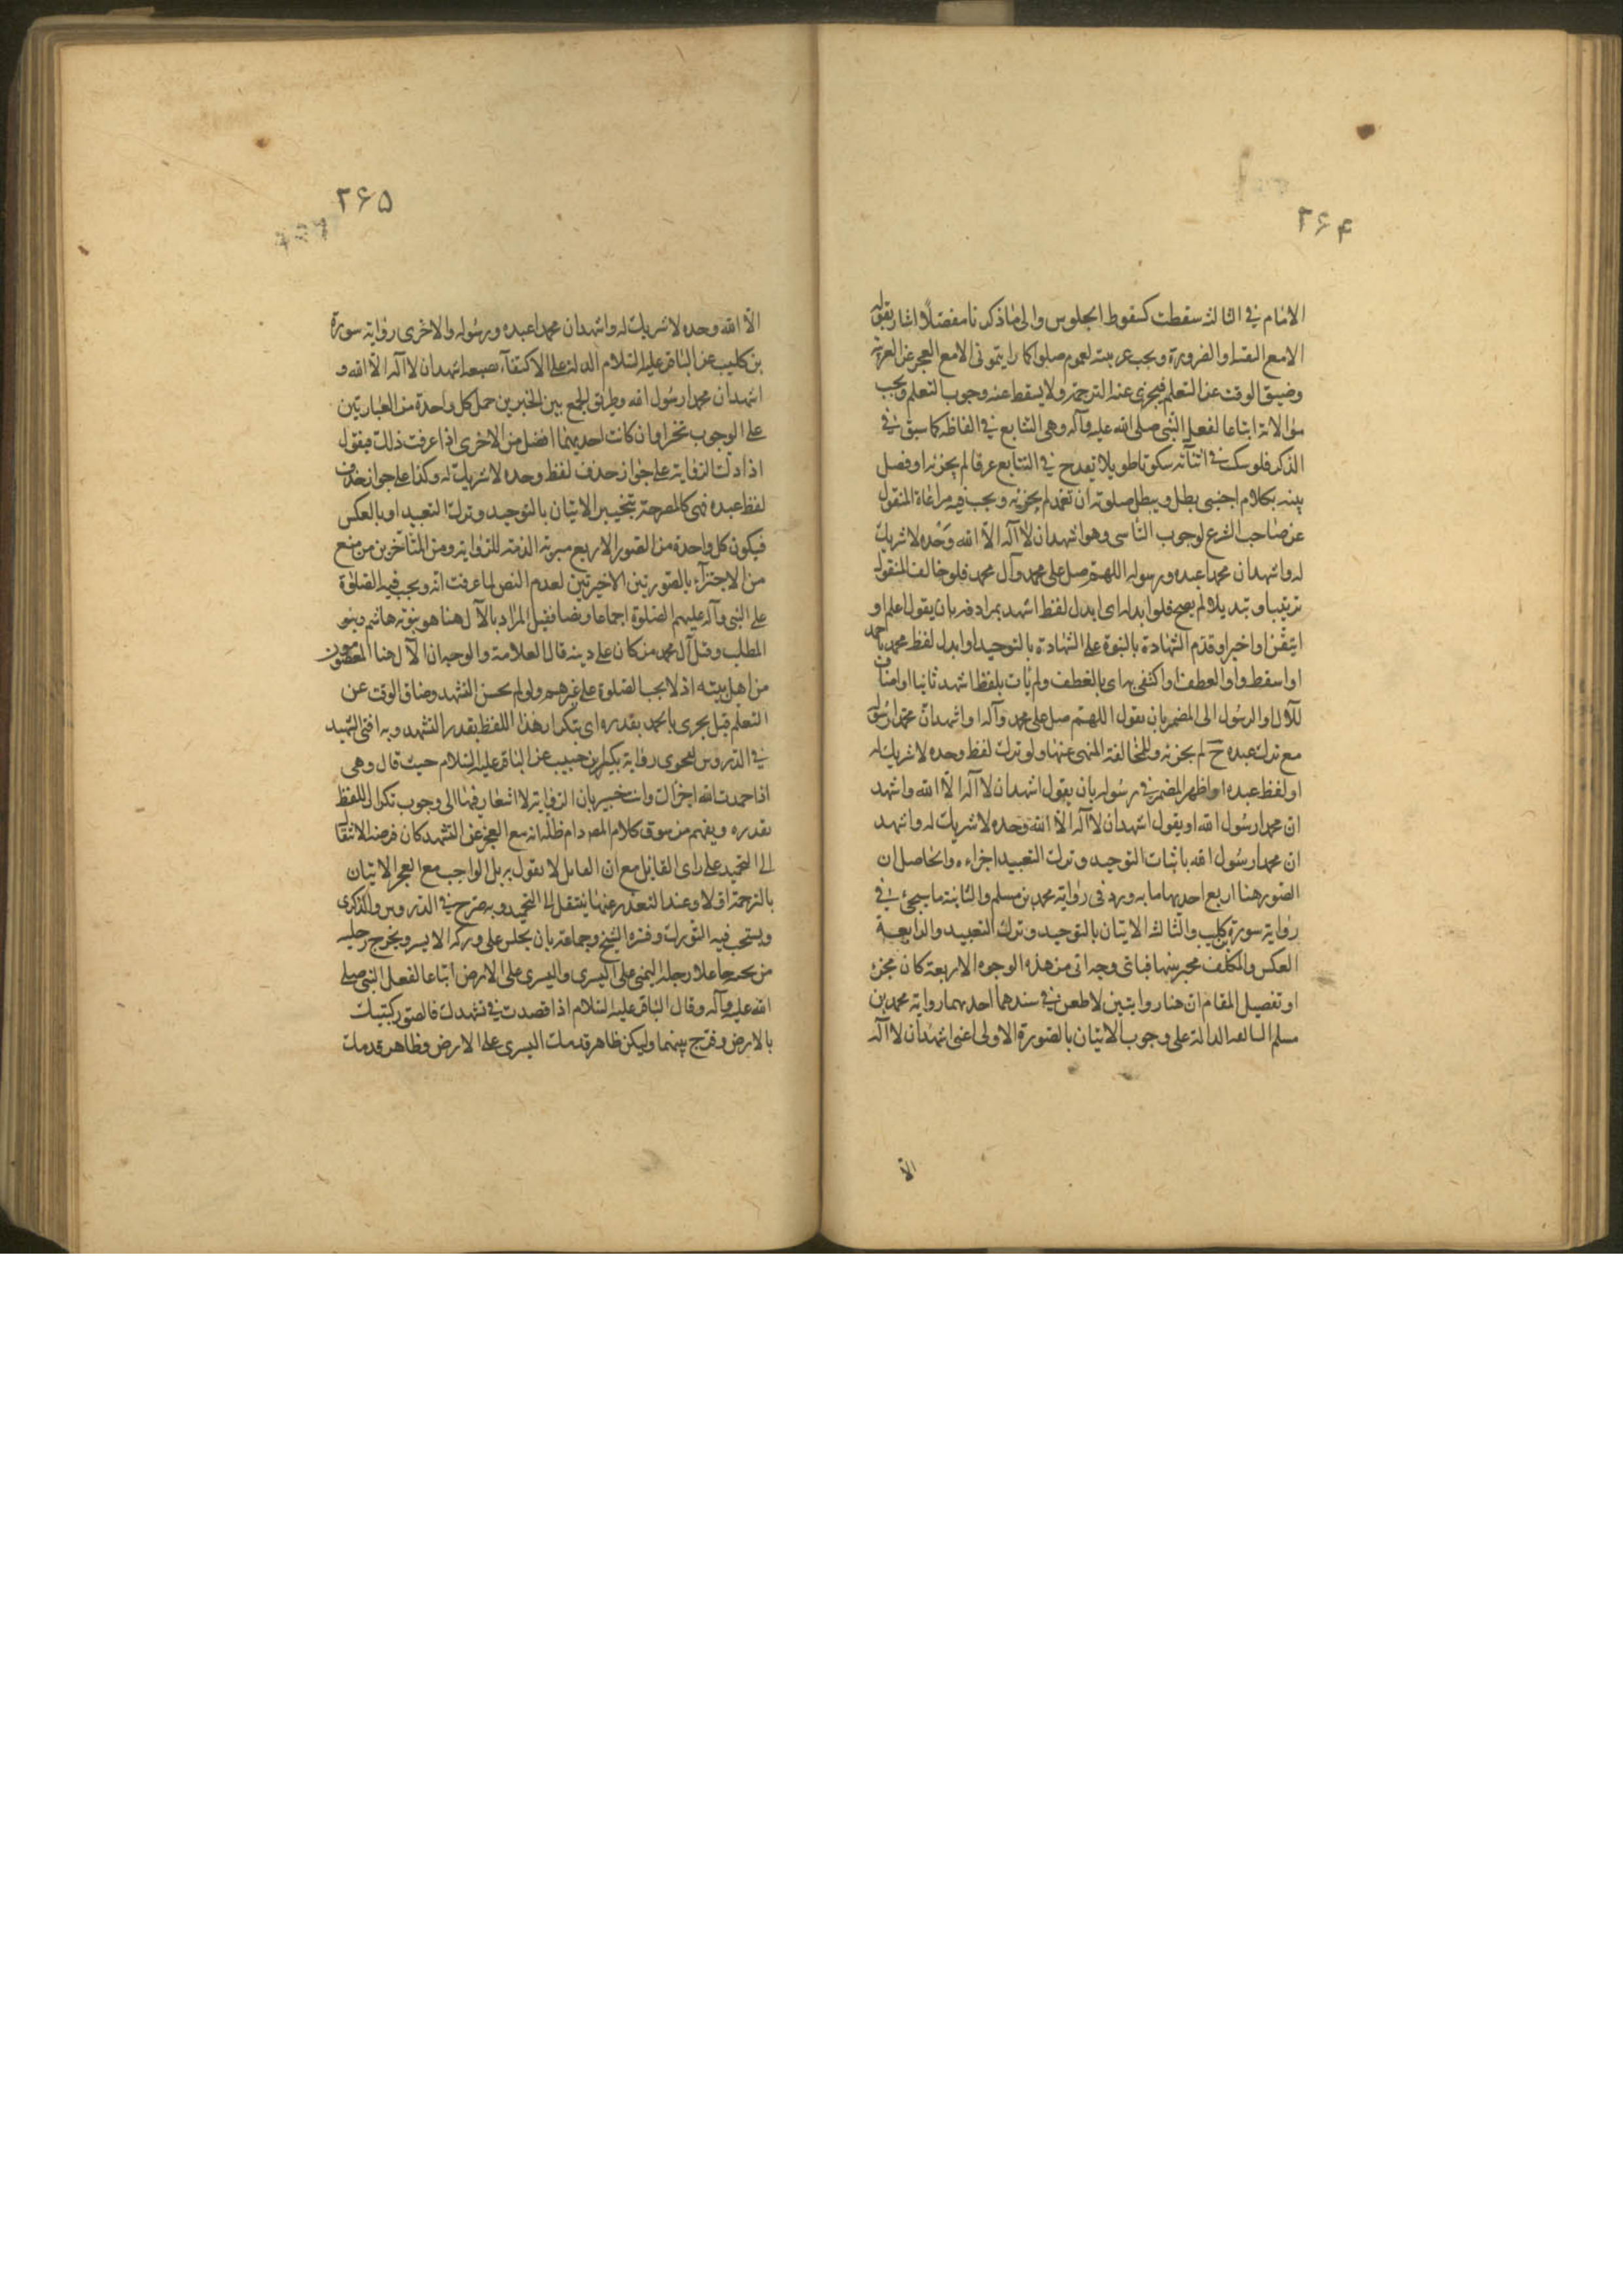 ٢۶۴
الامام في الثالثة سقطت كسقوط الجلوس والى ما ذكرنا مفصّلاً اشار بقوله
الا مع التقية او الضرورة ويجب عربيته لعموم صلوا كما رايتموني الا مع العجز عن العربية
وضيق الوقت عن التعلم فيجزى عنه الترجمة ولا يسقط عنه وجوب التعلم ويجب
موالاته اتباعا لفعل النبي صلى الله عليه وآله وهى التتابع في الفاظه كما سبق في
الذكر فلو سكت في اثنائه سكوتا طويلا تقدح في التتابع عرفا لم يجزئه او فصل
بينه بكلام اجنبى بطل ويبطل صلوته ان تعمد لم يجزئه ويجب فيه مراعاة المنقول
عن صاحب الشرع لوجوب التاسى وهو اشهد ان لا آله الّا الله وحده لا شريك
له واشهد ان محمدا عبده ورسوله اللهم صل على محمد وآل محمد فلو خالف المنقول
ترتيبا وتبديلا لم يصح فلو ابدله اى ابدل لفظ اشهد بمرادفه بان يقول اعلم او
اتيقن او اخبر او قدم الشهادة بالنبوة على الشهادة بالتوحيد او ابدل لفظ محمد باحمد
او اسقط واو العطف او اكتفى به اى بالعطف ولم يات بلفظ اشهد ثانيا او اضاف
للآل او الرسول الى المضمر بان يقول اللهم صل على محمد وآله او اشهد ان محمدا رسوله
مع ترك عبده ح لم يجزئه وللمخالفة المنهى عنها ولو ترك لفظ وحده لا شريك له
او لفظ عبده او اظهر المضمر في رسوله بان يقول اشهد ان لا آله الّا الله واشهد
ان محمدا رسول الله او يقول اشهد ان لا آله الّا الله وحده لا شريك له واشهد
ان محمدا رسول الله باثبات التوحيد وترك التعبيد اجزاءه والحاصل ان
الصور هنا اربع احديهما ما به ورد في رواية محمد بن مسلم والثانية ما سيجئ في
رواية سورة بن كليب والثالث الاتيان بالتوحيد وترك التعبيد والرابعة
العكس والمكلف مخير بينها فباى وجه اتى من هذه الوجوه الاربعة كان مجزئ
او تفصيل المقام ان هنا روايتين لا طعن في سندهما احديهما رواية محمد بن
مسلم السالفه الدالة على وجوب الاتيان بالصورة الاولى اعنى اشهد ان لا آله
الّا
٢۶۵
الّا الله وحده لا شريك له واشهد ان محمدا عبده ورسوله والاخرى رواية سورة
بن كليب عن الباقر عليه السلام الدالة على الاكتفاء بصيغه اشهد ان لا آله الّا الله و
اشهد ان محمدا رسول الله وطريق الجمع بين الخبرين حمل كل واحدة من العبارتين
على الوجوب تخيرا وان كانت احديهما افضل من الاخرى اذا عرفت ذلك فيقول
اذا دلت الرواية على جواز حذف لفظ وحده لا شريك له وكذا على جواز حذف
لفظ عبده فهى كالمصرحة بتخيير الاتيان بالتوحيد وترك التعبيد او بالعكس
فيكون كل واحدة من الصور الاربع مبرية الذمة للرواية ومن المتأخرين من منع
من الاجتزاء بالصورتين الاخيرتين لعدم النص لما عرفت انه ويجب فيه الصلوة
على النبى وآله عليهم الصلوة اجماعا ونصا فقيل المراد بالآل هنا هو بنو هاشم وبنو
المطلب وقيل آل محمد من كان على دينه قال العلامة والوجه ان الآل هنا المعصومون
من اهل بيته اذ لا يجب الصلوة على غيرهم ولو لم يحسن التشهد وضاق الوقت عن
التعلم قيل يجرى بالحمد بقدره اى بتكرار هذا اللفظ بقدر التشهد وبه افتى الشهيد
في الدروس لفحوى رواية بكر بن حبيب عن الباقر عليه السلام حيث قال وهى
اذا حمدت الله اجزاك وانت خبير بان الرواية لا اشعار فيها الى وجوب تكرار اللفظ
بقدره ويفهم من سوق كلام المص دام ظله انه مع العجز عن التشهد كان فرضه الانتقال
الى التحميد على راى القايل مع ان القايل لا يقول به بل الواجب مع العجز الاتيان
بالترجمة اولا وعند التعذر عنها ينتقل الى التحميد وبه صرح في الدروس والذكرى
ويستحب فيه التورك وفسره الشيخ وجماعة بان يجلس على وركه الايسر ويخرج رجليه
من تحته جاعلا رجله اليمنى على اليسرى واليسرى على الارض اتباعا لفعل النبى صلى
الله عليه وآله وقال الباقر عليه السلام اذا قعدت في تشهدك فالصق ركبتيك
بالارض وفرج بينهما وليكن ظاهر قدمك اليسرى على الارض وظاهر قدمك